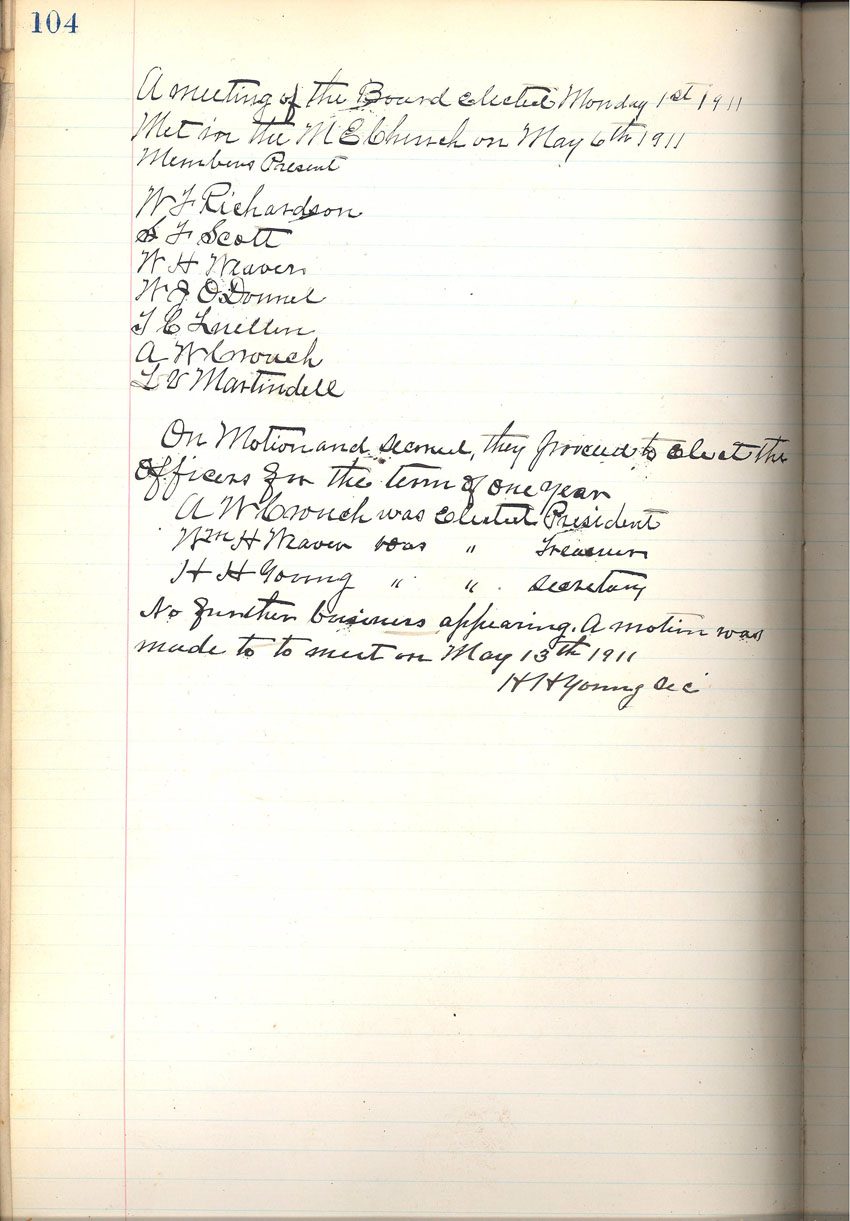 104
A meeting of the Board elected Monday 1st 1911
Met in the M E Church on May 6th 1911
Members Present
W F Richardson
S F Scott
W H Weaver
W J O Donnel
T C Luellen
A W Crouch
L V Martindell
On Motion and second, they proceed to elect the
officers for the term of one year
A W Crouch was elected President
Wm H Weaver was " Treasurer
H H Young " " Secretary
No further business appearing. A motion was
made to to meet on May 13th 1911
H H Young Sec